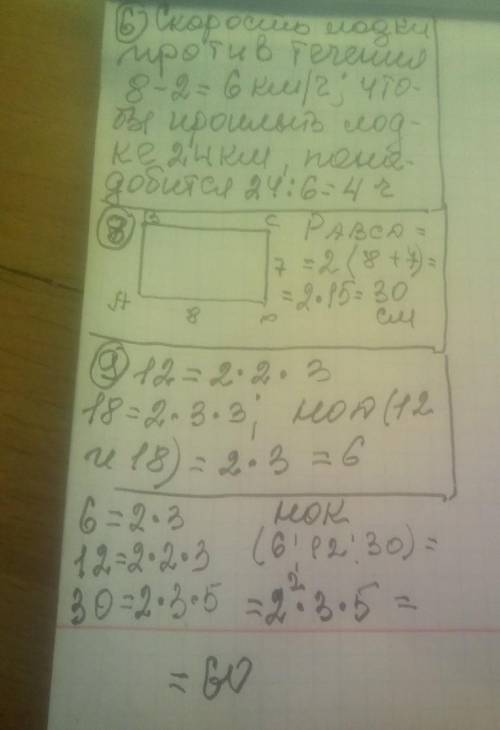 6) Скорость лодки
против течения
8-2=6 км/ч; что-
бы проплыть лод-
ке 24 км, пона-
добится 24:6=4 ч
8 B C PABCD =
7 = 2(8+7)=
A 8 D = 2·15=30
см
9 12=2·2·3
18=2·3·3; НОД(12
и 18)=2·3=6
6=2·3 НОК
12=2·2·3 (6;12;30)=
30=2·3·5 =2²·3·5=
=60